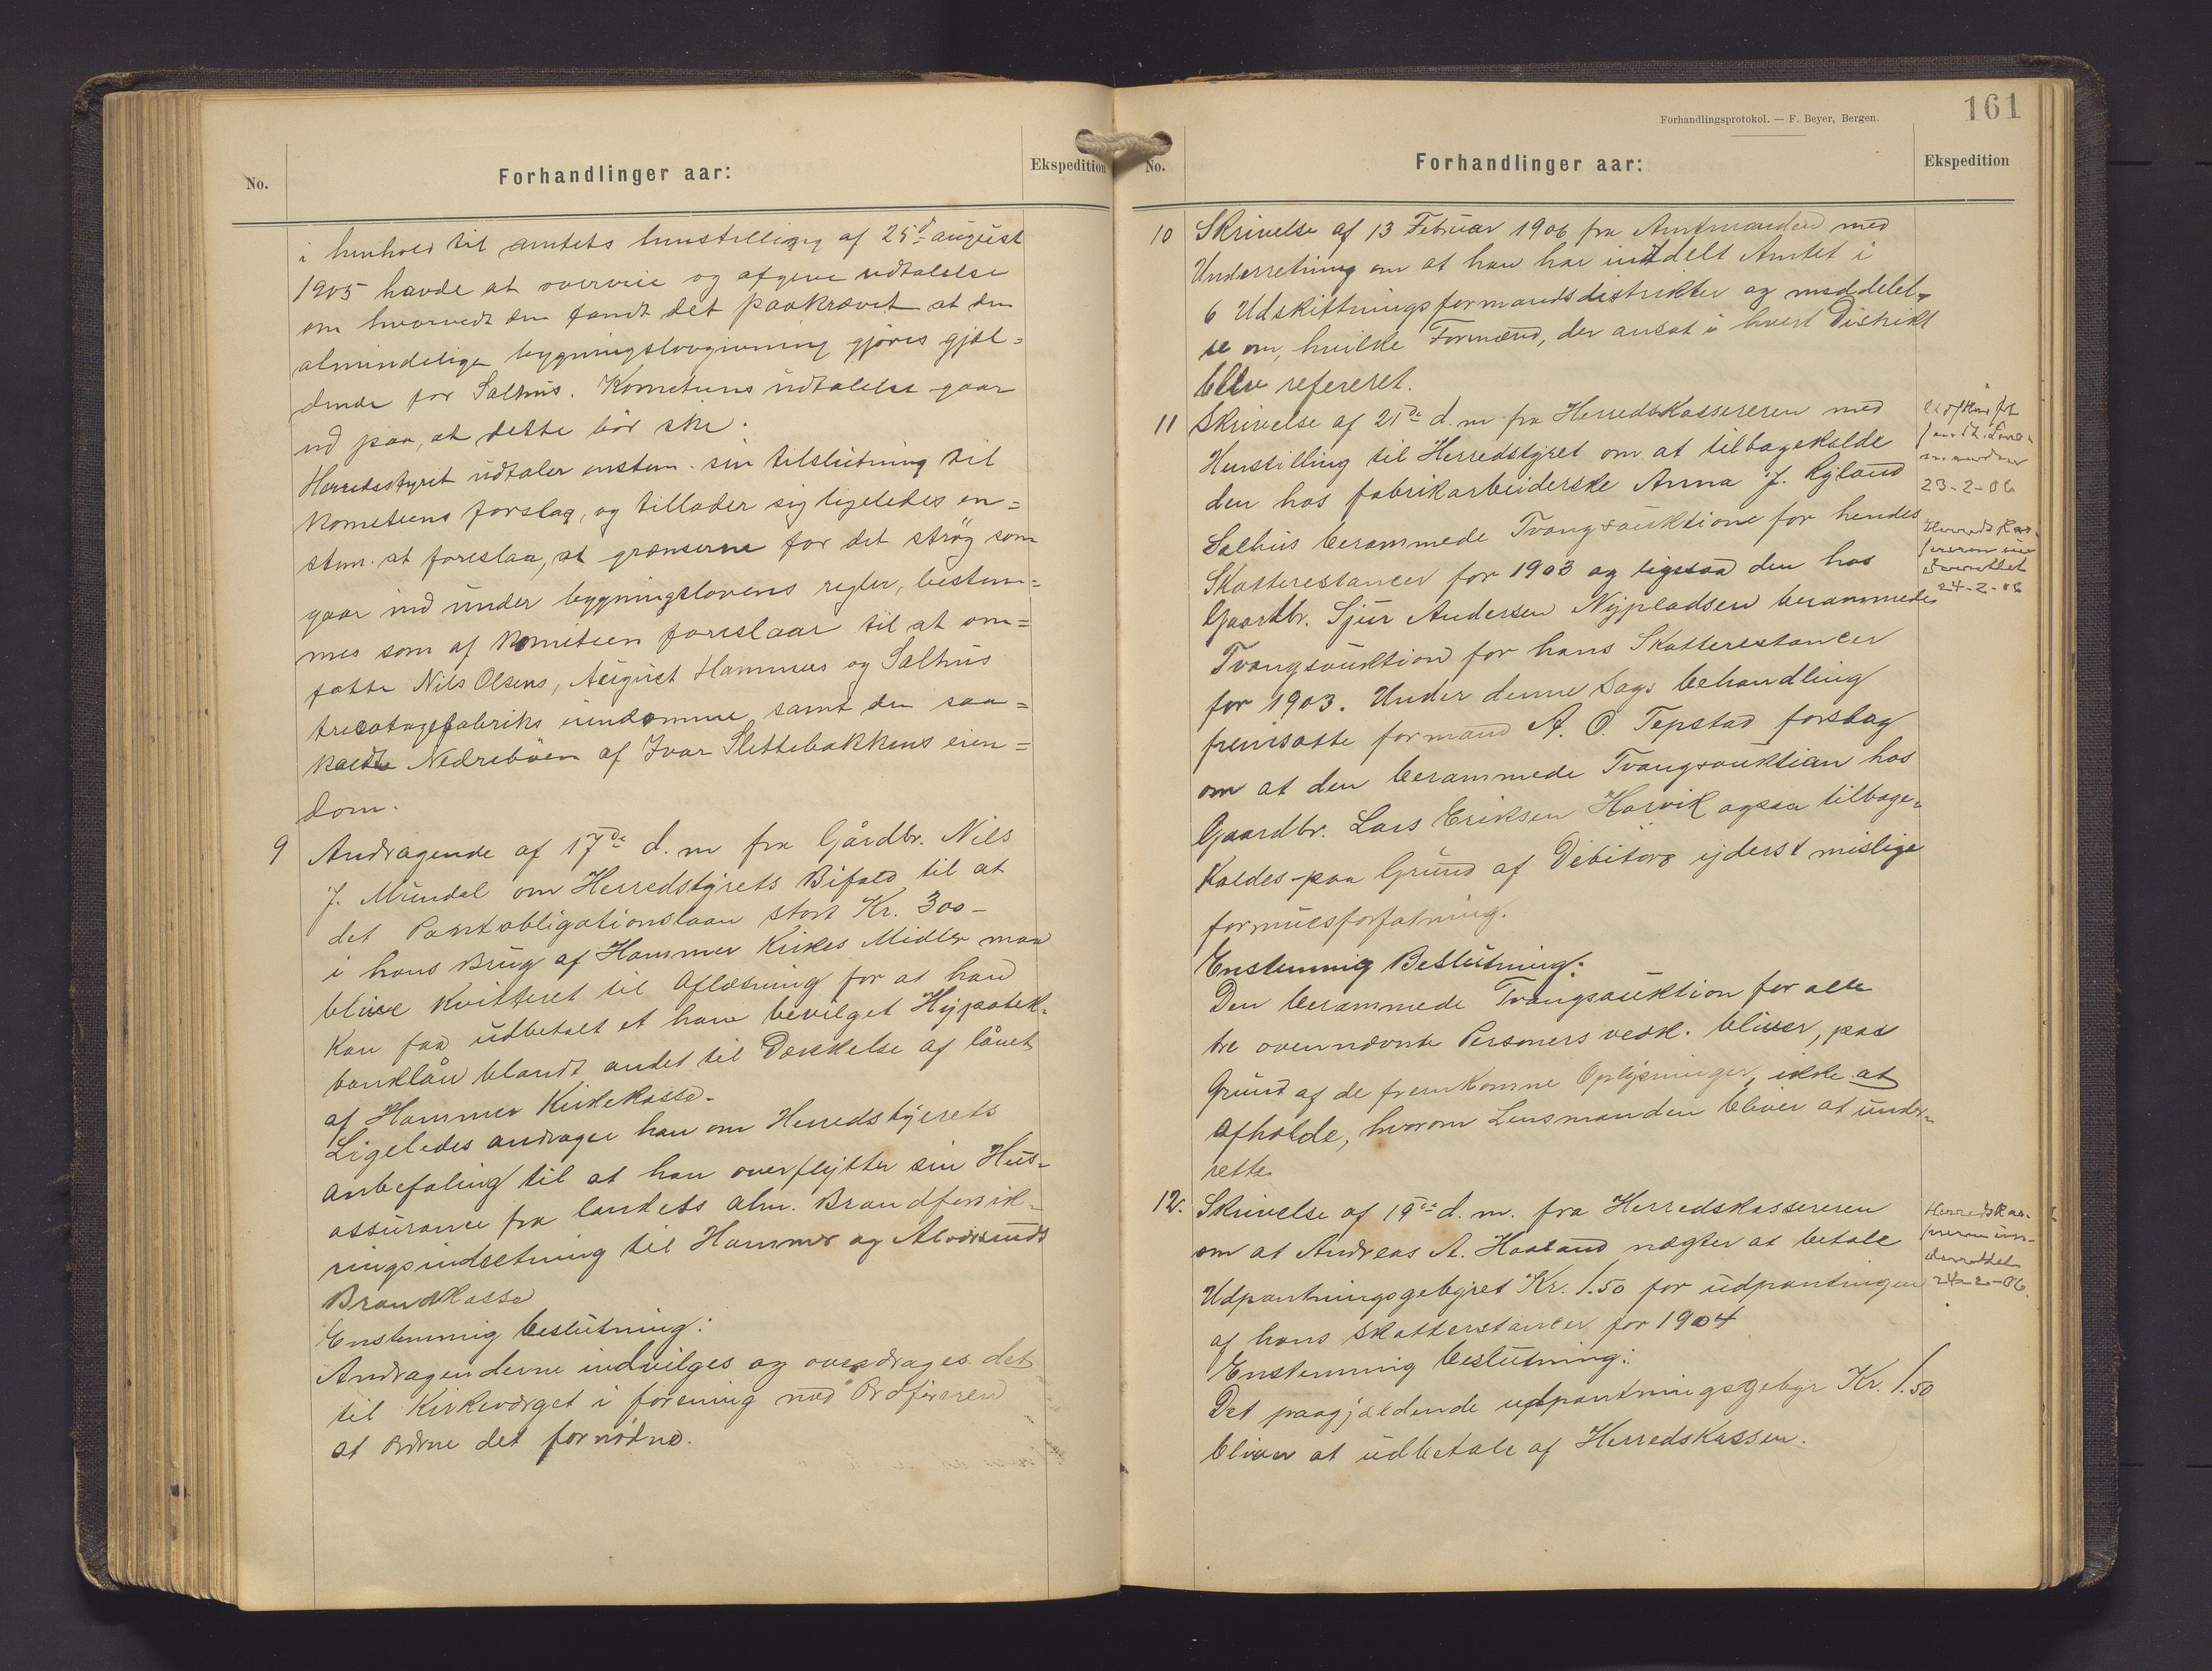 No.
Forhandlinger aar:
Ekspedition
i henhold til amtets henstilling af 25d august
1905 havde at overveie og afgive udtalelse
om hvorvidt den fandt det paakrævet at den
almindelige bygningslovgivning gjøres gjæl=
dende for Salhus. Kometeens udtalelse gaar
ud paa, at dette bör ske.
Herredsstyret udtaler enstem. sin tilslutning til
kometeens forslag, og tillader sig ligeledes en=
stem. at foreslaa, at grænserne for det strøg som
gaar ind under bygningslovens regler, bestem=
mes som af kometeen foreslaar til at om=
fatte Nils Olsens, August Hammers og Salhus
tricotagefabriks eiendomme samt den saa=
kaldte Nedreböen af Ivar Slettebakkens eien=
dom.
9 Andragende af 17de d.m fra Gårdbr. Nils
J. Mundal om Herredstyrets Bifald til at
det Pantobligationslaan stort Kr. 300-
i hans Brug af Hammer Kirkes Midler maa
blive kvitteret til Aflæsning for at han
kan faa udbetalt et ham bevilget Hypotek-
banklån blandt andet til Dækkelse af lånet
af Hammer Kirkekasse.
Ligeledes andrager han om Herredstyrets
anbefaling til at han overflytter sin Hus-
assurance fra landets alm. Brandforsik-
ringsindretning til Hammer og Alversunds
Brandkasse
Enstemmig beslutning:
Andragenderne indvilges og overdrages det
til Kirkeværget i forening med Ordføreren
at ordne det fornødne.
161
Forhandlingsprotokol. — F. Beyer, Bergen.
No.
Forhandlinger aar:
Ekspedition
10 Skrivelse af 13 Februar 1906 fra Amtmanden med
Underretning om at han har inddelt Amtet i
6 Udskiftningsformandsdistrikter og meddelel-
se om, hvilke Formænd, der ansat i hvert Distrikt
blev refereret.
11 Skrivelse af 21de d.m fra Herredskassereren med
Henstilling til Herredstyret om at tilbagekalde
den hos fabrikarbeiderske Anna J. Ryland
Salhus berammede Tvangsauktione for hendes
Skatterestancer for 1903 og ligesaa den hos
Gaardbr. Sjur Andersen Nypladsen berammede
Tvangsauktion for hans Skatterestancer
for 1903. Under denne Sags behandling
fremsatte formand A. O. Tepstad forslag
om at den berammede Tvangsauktian hos
Gaardbr. Lars Eriksen Horvik ogsaa tilbage-
kaldes paa Grund af Debitors yderst mislige
formuesforfatning.
Enstemmig Beslutning:
Den berammede Tvangsauktion for alle
tre ovennævnte Personers vedk. bliver, paa
Grund af de fremkomne Oplysninger, ikke at
afholde, hvorom Lensmanden bliver at under-
rette
23-2-06
Herreds Kas-
sereren un
derrettet
24-2-06
12. Skrivelse af 19de d.m. fra Herredskassereren
om at Andreas A. Haaland nægter at betale
Udpantningsgebyret Kr. 1.50 for udpantningen
af hans skatterestancer for 1904
Enstemmig beslutning:
Det paagjældende udpantningsgebyr Kr. 1.50
bliver at udbetale af Herredskassen.
Herreds Kas-
sereren un-
derrettet
24-2-06.